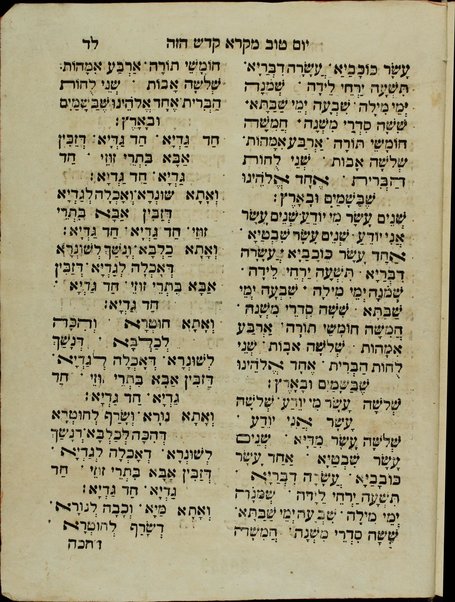 יום טוב מקרא קדש הזה
לד
עֲשָׂר כּוֹכְבַיָּא׳ עֲשָׂרָה דִבְּרַיָּא׳
תִּשְׁעָה יַרְחֵי לֵידָה׳ שְׁמֹנָה
יְמֵי מִילָה׳ שִׁבְעָה יְמֵי שַׁבַּתָּא׳
שִׁשָּׁה סִדְרֵי מִשְׁנָה׳ חֲמִשָּׁה
חוּמְשֵׁי תוֹרָה׳ אַרְבַּע אִמָּהוֹת
שְׁלֹשָׁה אָבוֹת׳ שְׁנֵי לֻחוֹת
הַבְּרִית׳ אֶחָד אֱלֹהֵינוּ
שֶׁבַּשָּׁמַיִם וּבָאָרֶץ׃
שְׁנֵים עָשָׂר מִי יוֹדֵעַ שְׁנֵים עָשָׂר
אֲנִי יוֹדֵעַ׳ שְׁנֵים עָשָׂר שִׁבְטַיָּא׳
אַחַד עָשָׂר כּוֹכְבַיָּא׳ עֲשָׂרָה
דִבְּרַיָּא׳ תִּשְׁעָה יַרְחֵי לֵידָה׳
שְׁמֹנָה יְמֵי מִילָה׳ שִׁבְעָה יְמֵי
שַׁבַּתָּא׳ שִׁשָּׁה סִדְרֵי מִשְׁנָה׳
חֲמִשָּׁה חוּמְשֵׁי תוֹרָה׳ אַרְבַּע
אִמָּהוֹת׳ שְׁלֹשָׁה אָבוֹת׳ שְׁנֵי
לֻחוֹת הַבְּרִית׳ אֶחָד אֱלֹהֵינוּ
שֶׁבַּשָּׁמַיִם וּבָאָרֶץ׃
שְׁלֹשָׁה עָשָׂר מִי יוֹדֵעַ׳ שְׁלֹשָׁה
עָשָׂר אֲנִי יוֹדֵעַ׳
שְׁלֹשָׁה עָשָׂר מִדַּיָּא׳ שְׁנֵים
עָשָׂר שִׁבְטַיָּא׳ אַחַד עָשָׂר
כּוֹכְבַיָּא׳ עֲשָׂרָה דִבְּרַיָּא׳
תִּשְׁעָה יַרְחֵי לֵידָה׳ שְׁמֹנָה
יְמֵי מִילָה׳ שִׁבְעָה יְמֵי שַׁבַּתָּא׳
שִׁשָּׁה סִדְרֵי מִשְׁנָה׳ חֲמִשָּׁה
חוּמְשֵׁי תוֹרָה׳ אַרְבַּע אִמָּהוֹת׳
שְׁלֹשָׁה אָבוֹת׳ שְׁנֵי לֻחוֹת
הַבְּרִית׳ אֶחָד אֱלֹהֵינוּ שֶׁבַּשָּׁמַיִם
וּבָאָרֶץ׃
חַד גַּדְיָא׳ חַד גַּדְיָא׳ דְּזַבִּין
אַבָּא בִּתְרֵי זוּזֵי׳ חַד
גַּדְיָא׳ חַד גַּדְיָא׃
וְאָתָא שׁוּנְרָא׳ וְאָכְלָה לְגַדְיָא
דְּזַבִּין אַבָּא בִּתְרֵי
זוּזֵי׳ חַד גַּדְיָא׳ חַד גַּדְיָא׃
וְאָתָא כַלְבָּא׳ וְנָשַׁךְ לְשׁוּנְרָא
דְּאָכְלָה לְגַדְיָא׳ דְּזַבִּין
אַבָּא בִּתְרֵי זוּזֵי׳ חַד גַּדְיָא׳
חַד גַּדְיָא׃
וְאָתָא חוּטְרָא׳ וְהִכָּה
לְכַלְבָּא׳ דְּנָשַׁךְ
לְשׁוּנְרָא׳ דְּאָכְלָה לְגַדְיָא׳
דְּזַבִּין אַבָּא בִּתְרֵי זוּזֵי׳ חַד
גַּדְיָא׳ חַד גַּדְיָא׃
וְאָתָא נוּרָא׳ וְשָׂרַף לְחוּטְרָא
דְּהִכָּה לְכַלְבָּא׳ דְּנָשַׁךְ
לְשׁוּנְרָא׳ דְּאָכְלָה לְגַדְיָא׳
דְּזַבִּין אַבָּא בִּתְרֵי זוּזֵי׳ חַד
גַּדְיָא׳ חַד גַּדְיָא׃
וְאָתָא מַיָּא׳ וְכָבָה לְנוּרָא׳
דְּשָׂרַף לְחוּטְרָא
דהכה